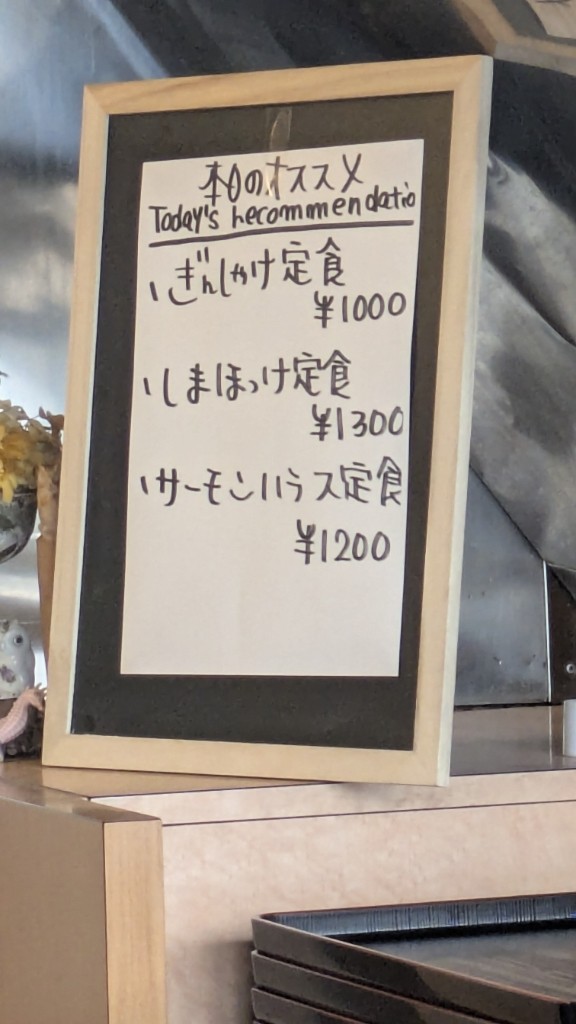 本日のオススメ
Today's recommendatio
、ぎんしゃけ定食
¥1000
、しまほっけ定食
¥1300
、サーモンハラス定食
¥1200